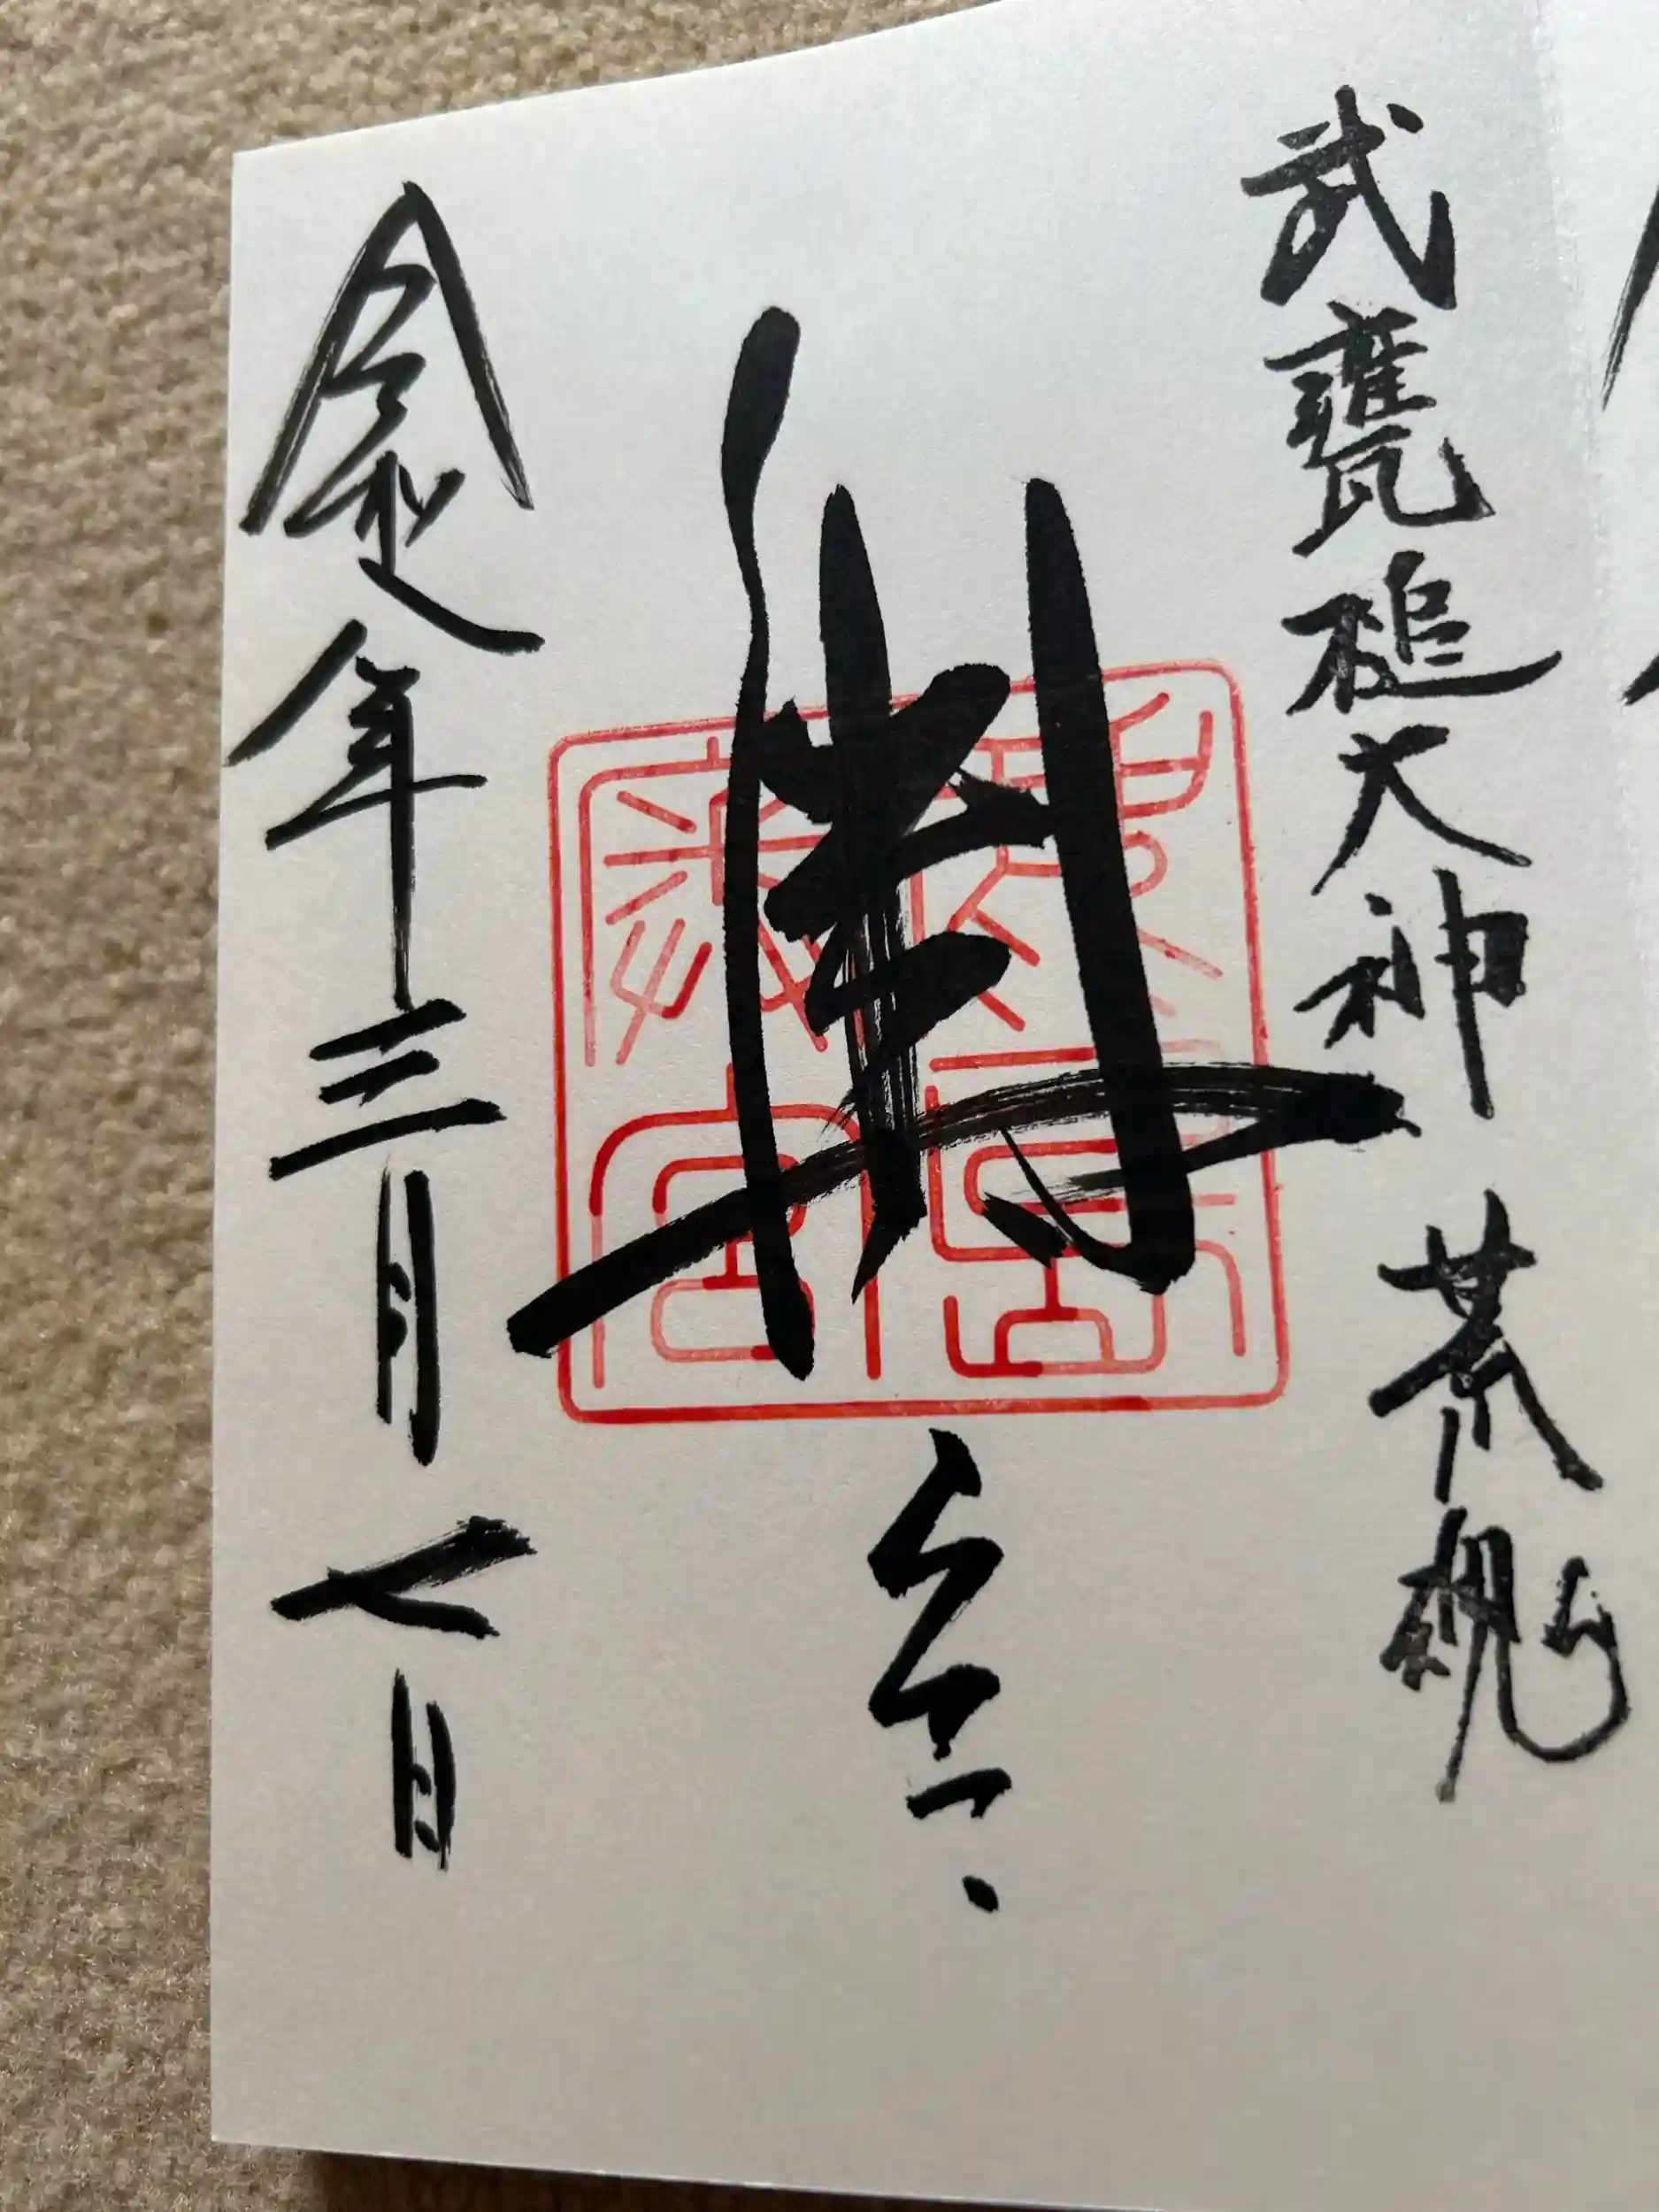 武甕槌大神 荒魂
奥宮
令和年三月七日
鹿島奥宮